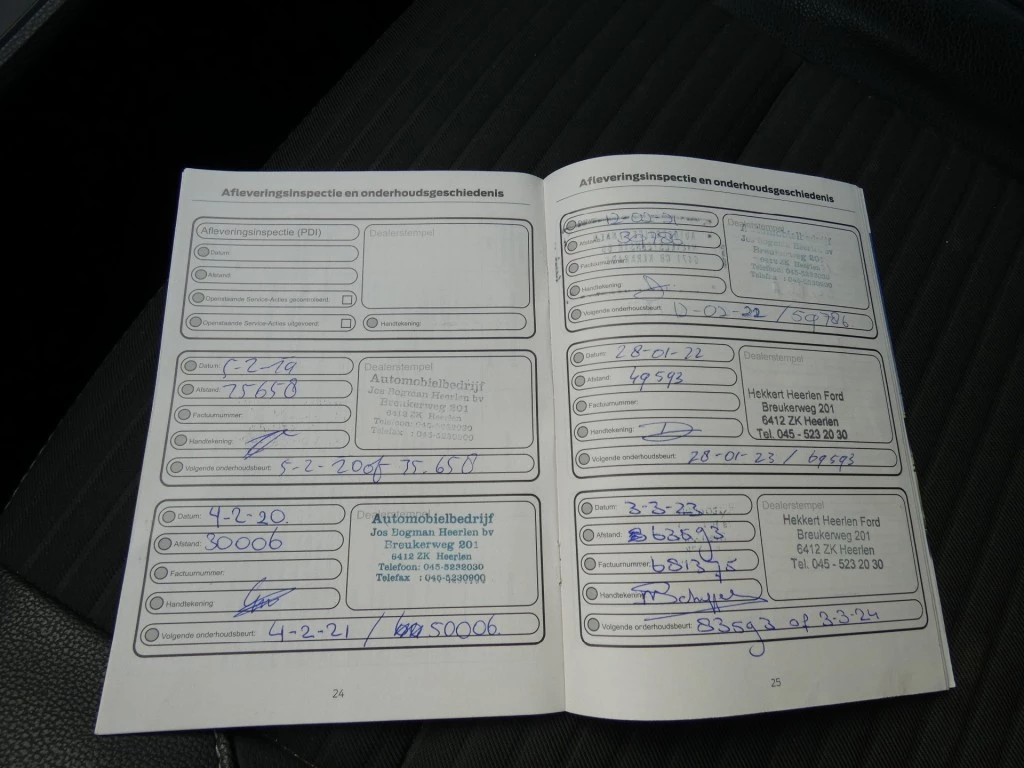 Afleveringsinspectie en onderhoudsgeschiedenis
Afleveringsinspectie (PDI)
Dealerstempel
Datum:
Afstand:
Openstaande Service-Acties gecontroleerd:
Openstaande Service-Acties uitgevoerd:
Handtekening:
Datum: 5-2-19
Afstand:
Factuurnummer:
Handtekening:
Dealerstempel
Automobielbedrijf
Jos Bogman Heerlen bv
Breukerweg 201
6412 ZK Heerlen
Telefoon: 045-5232030
Telefax : 045-5230900
Volgende onderhoudsbeurt: 5-2-20 of 35.658
Datum: 4-2-20.
Afstand: 30006
Factuurnummer:
Handtekening:
Dealerstempel
Automobielbedrijf
Jos Bogman Heerlen bv
Breukerweg 201
6412 ZK Heerlen
Telefoon: 045-5232030
Telefax : 045-5230900
Volgende onderhoudsbeurt: 4-2-21 / 50006.
24
Afleveringsinspectie en onderhoudsgeschiedenis
Factuurnummer:
Handtekening:
Dealerstempel
Jos Bogman Heerlen bv
Breukerweg 201
6412 ZK Heerlen
Telefoon: 045-5232030
Volgende onderhoudsbeurt: 12-02-22 / 59786
Datum: 28-01-22
Afstand: 49593
Factuurnummer:
Handtekening:
Dealerstempel
Hekkert Heerlen Ford
Breukerweg 201
6412 ZK Heerlen
Tel. 045 - 523 20 30
Volgende onderhoudsbeurt: 28-01-23 / 69593
Datum: 3-3-23
Afstand: 63593
Factuurnummer: 681375
Handtekening:
Dealerstempel
Hekkert Heerlen Ford
Breukerweg 201
6412 ZK Heerlen
Tel. 045 - 523 20 30
Volgende onderhoudsbeurt: 83593 of 3-3-24
25